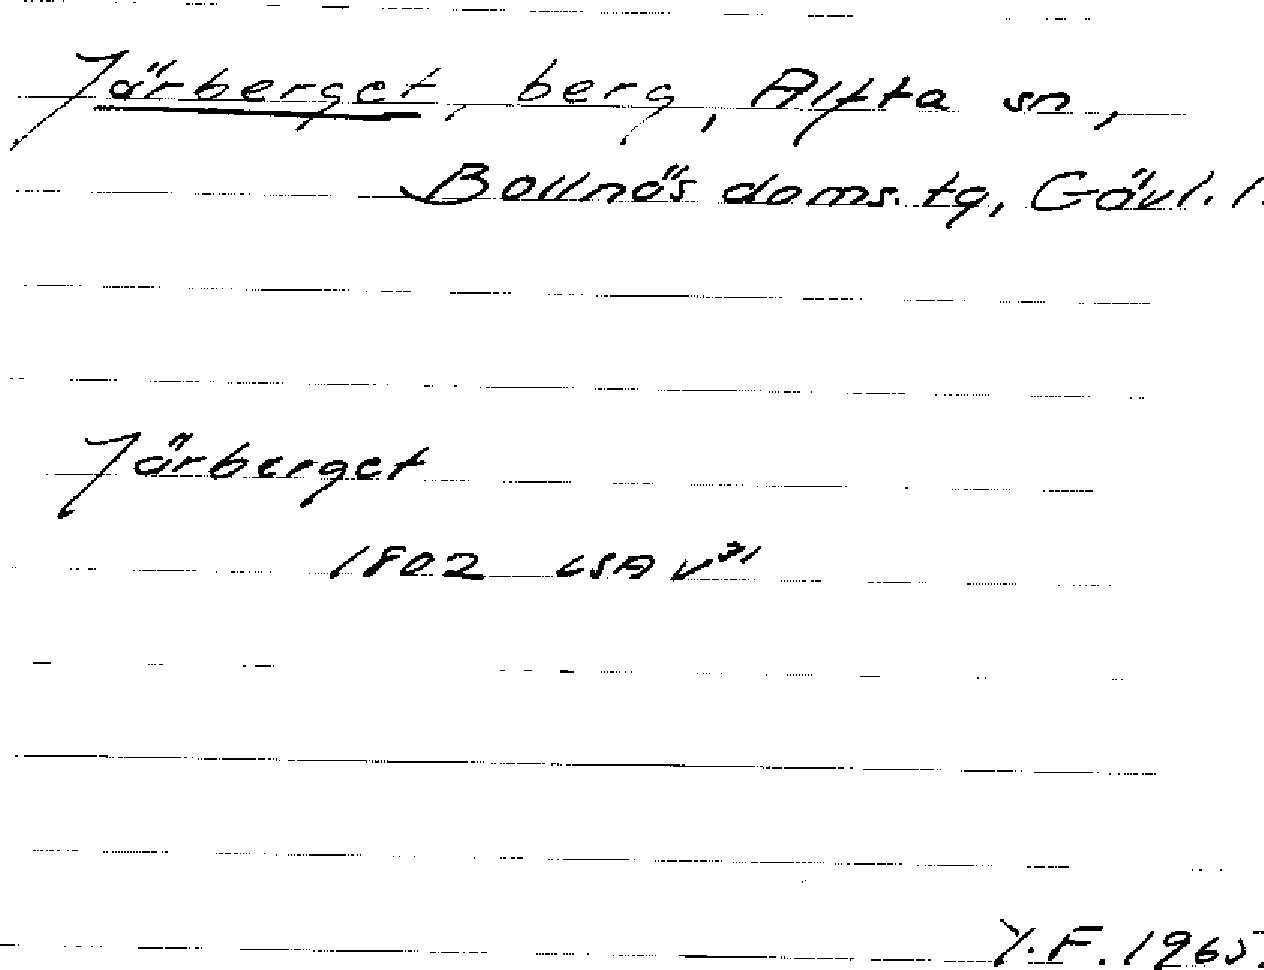 Järberget, berg, Alfta sn,
Bollnäs doms. tg, Gävl. l.
Järberget
1802 LSA V³¹
Y.F. 1965.